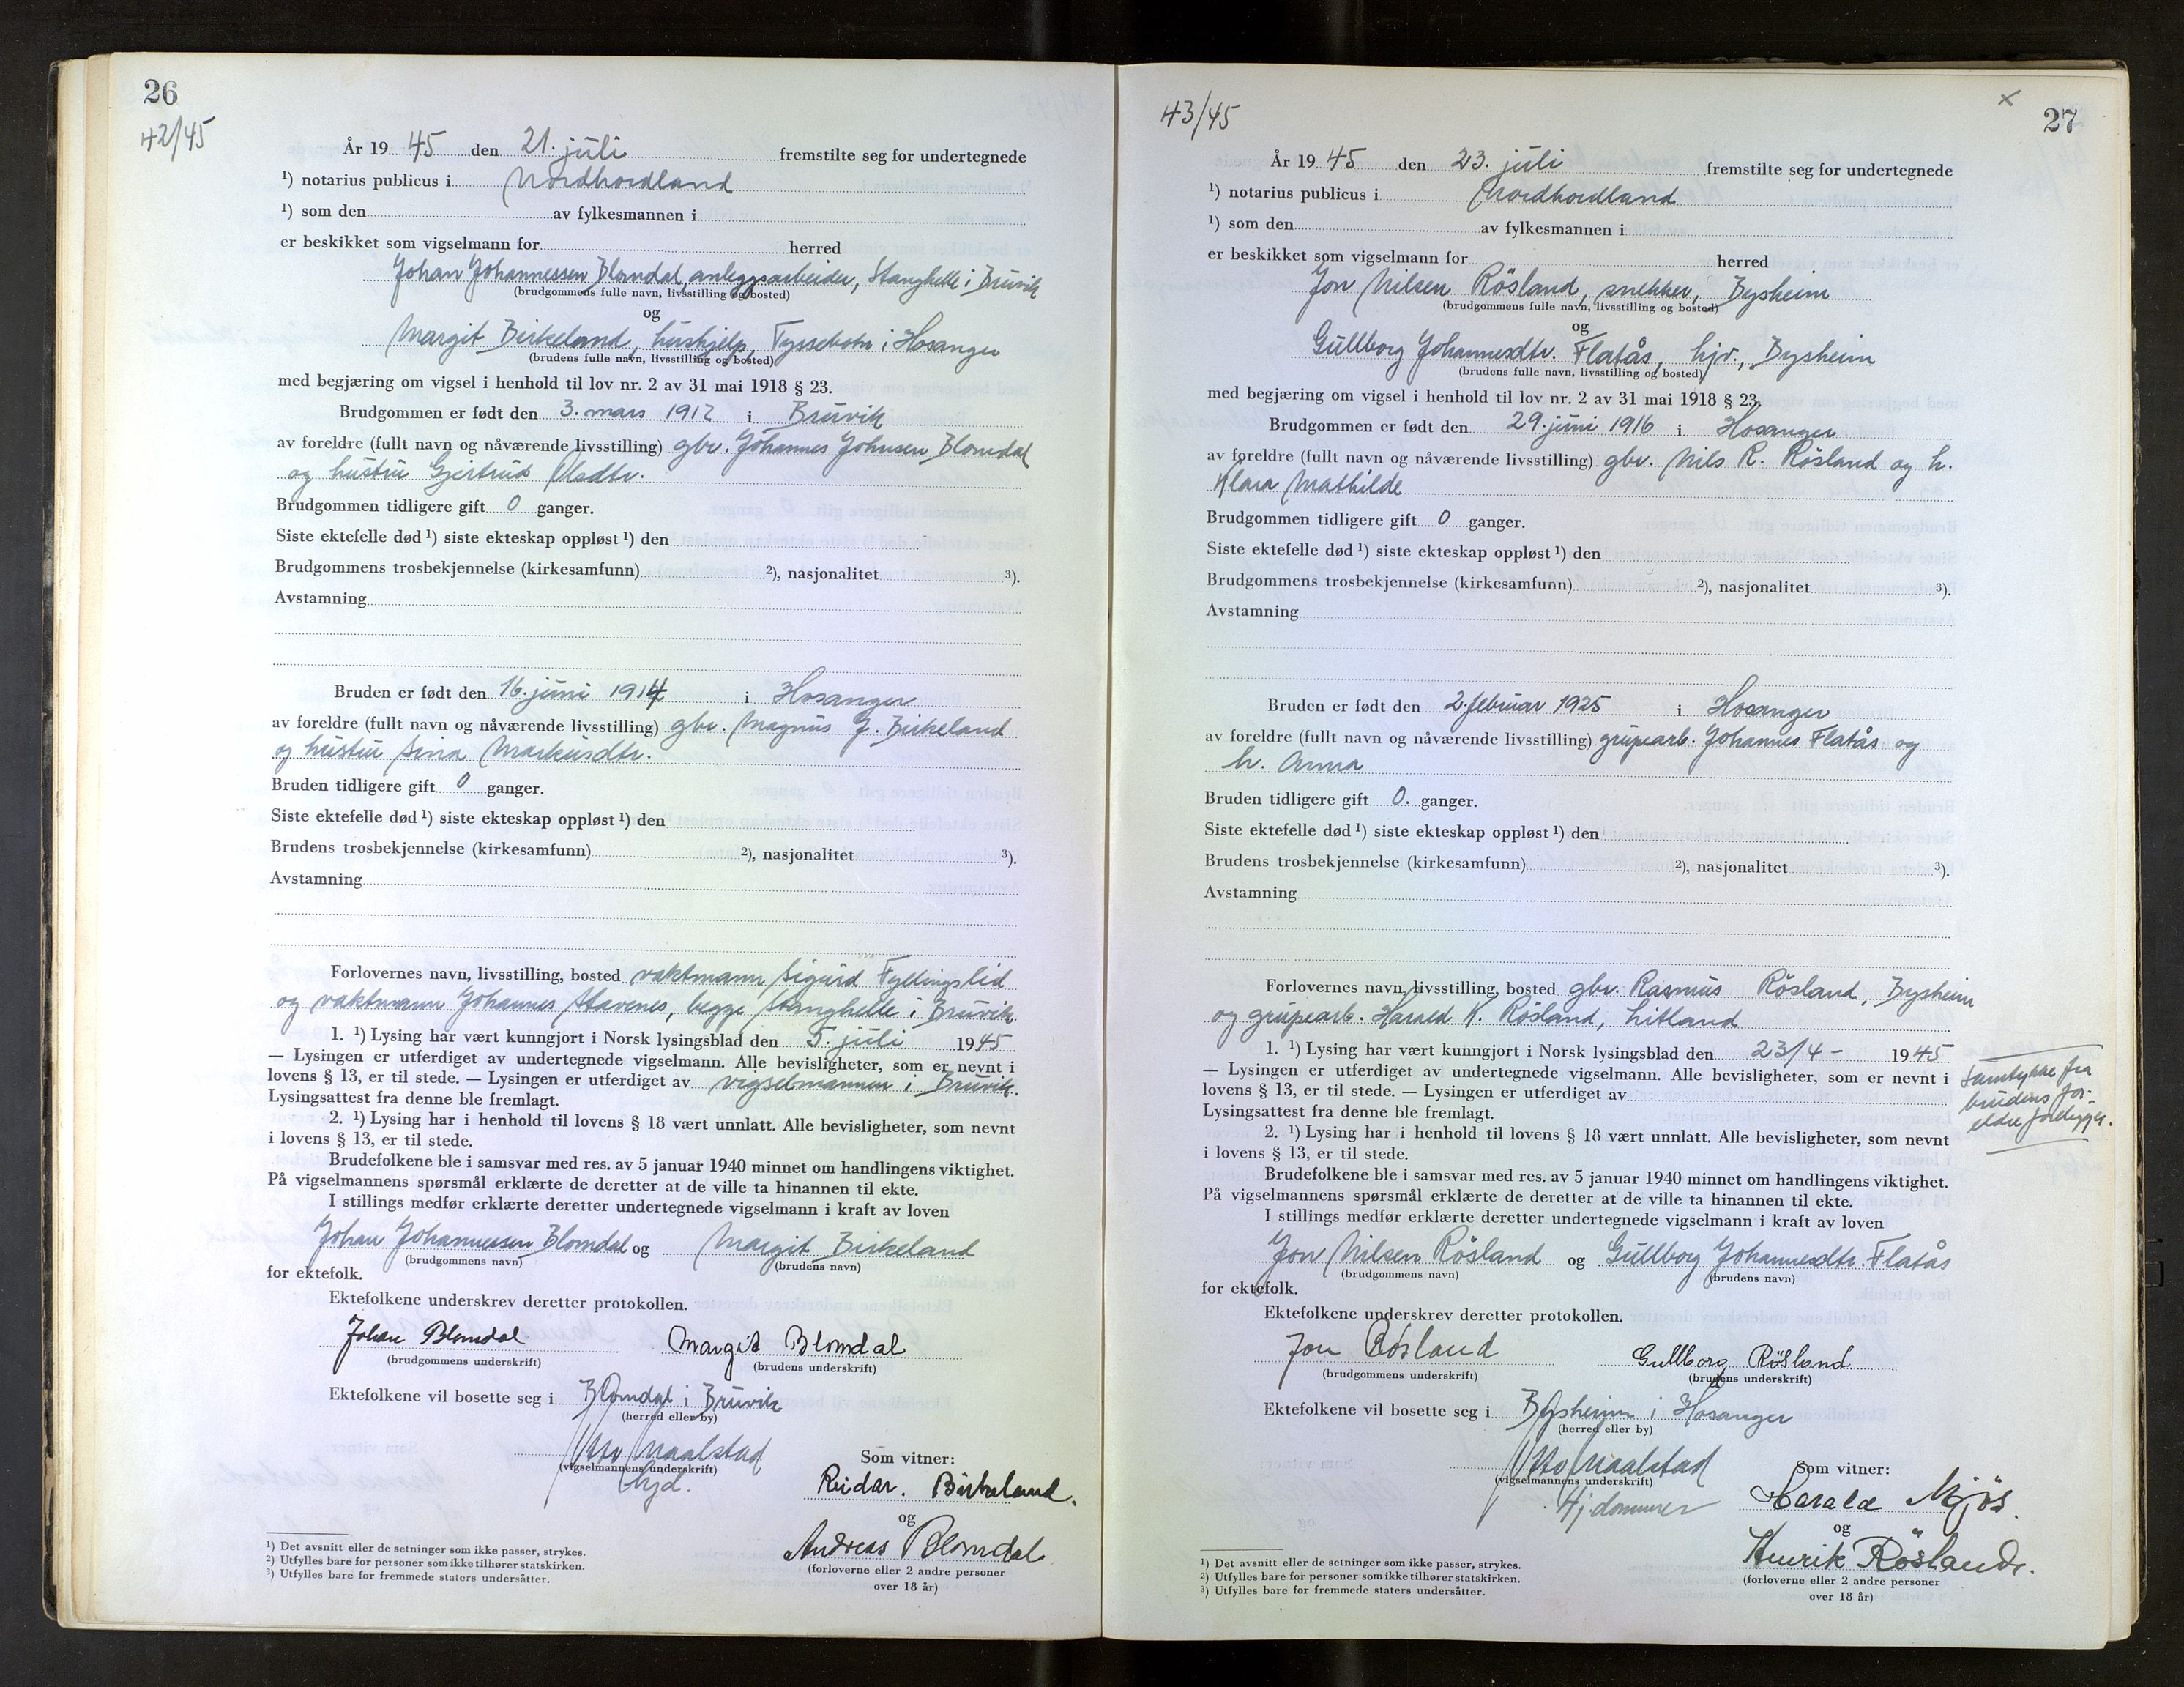 26
42/45
År 19 45 den 21. juli fremstilte seg for undertegnede
¹) notarius publicus i Nordhordland
¹) som den av fylkesmannen i
er beskikket som vigselmann for herred
Johan Johannessen Blomdal, anleggsarbeider, Stanghelle i Bruvik
(brudgommens fulle navn, livsstilling og bosted)
og
Margit Birkeland, hushjelp, Tyssebotn i Hosanger
(brudens fulle navn, livsstilling og bosted)
med begjæring om vigsel i henhold til lov nr. 2 av 31 mai 1918 § 23.
Brudgommen er født den 3. mars 1912 i Bruvik
av foreldre (fullt navn og nåværende livsstilling) gbr. Johannes Johnsen Blomdal
og hustru Gjertrud Olsdtr.
Brudgommen tidligere gift 0 ganger.
Siste ektefelle død ¹) siste ekteskap oppløst ¹) den
Brudgommens trosbekjennelse (kirkesamfunn) ²), nasjonalitet ³).
Avstamning
Bruden er født den 16. juni 1914 i Hosanger
av foreldre (fullt navn og nåværende livsstilling) gbr. Magnus J. Birkeland
og hustru Sina Markusdtr.
Bruden tidligere gift 0 ganger.
Siste ektefelle død ¹) siste ekteskap oppløst ¹) den
Brudens trosbekjennelse (kirkesamfunn) ²), nasjonalitet ³).
Avstamning
Forlovernes navn, livsstilling, bosted vaktmann Sigurd Fyllingslid
og vaktmann Johannes Stavenes, begge Stanghelle i Bruvik
1. ¹) Lysing har vært kunngjort i Norsk lysingsblad den 5. juli 1945
— Lysingen er utferdiget av undertegnede vigselmann. Alle bevisligheter, som er nevnt i
lovens § 13, er til stede. — Lysingen er utferdiget av vigselmannen i Bruvik.
Lysingsattest fra denne ble fremlagt.
2. ¹) Lysing har i henhold til lovens § 18 vært unnlatt. Alle bevisligheter, som nevnt
i lovens § 13, er til stede.
Brudefolkene ble i samsvar med res. av 5 januar 1940 minnet om handlingens viktighet.
På vigselmannens spørsmål erklærte de deretter at de ville ta hinannen til ekte.
I stillings medfør erklærte deretter undertegnede vigselmann i kraft av loven
Johan Johannessen Blomdal og Margit Birkeland
(brudgommens navn) (brudens navn)
for ektefolk.
Ektefolkene underskrev deretter protokollen.
Johan Blomdal Margit Blomdal
(brudgommens underskrift) (brudens underskrift)
Ektefolkene vil bosette seg i Blomdal i Bruvik
(herred eller by)
Otto Maalstad
(vigselmannens underskrift)
Som vitner:
Reidar. Birkeland.
og
Andreas Blomdal
(forloverne eller 2 andre personer
over 18 år)
¹) Det avsnitt eller de setninger som ikke passer, strykes.
²) Utfylles bare for personer som ikke tilhører statskirken.
³) Utfylles bare for fremmede staters undersåtter.
43/45
x
27
År 19 45 den 23. juli fremstilte seg for undertegnede
¹) notarius publicus i Nordhordland
¹) som den av fylkesmannen i
er beskikket som vigselmann for herred
Jon Nilsen Rösland, snekker, Bysheim
(brudgommens fulle navn, livsstilling og bosted)
og
Gullborg Johannesdtr. Flatås, hjv., Bysheim
(brudens fulle navn, livsstilling og bosted)
med begjæring om vigsel i henhold til lov nr. 2 av 31 mai 1918 § 23.
Brudgommen er født den 29. juni 1916 i Hosanger
av foreldre (fullt navn og nåværende livsstilling) gbr. Nils R. Rösland og h.
Klara Mathilde
Brudgommen tidligere gift 0 ganger.
Siste ektefelle død ¹) siste ekteskap oppløst ¹) den
Brudgommens trosbekjennelse (kirkesamfunn) ²), nasjonalitet ³).
Avstamning
Bruden er født den 2. februar 1925 i Hosanger
av foreldre (fullt navn og nåværende livsstilling) grupearb. Johannes Flatås og
h. Anna
Bruden tidligere gift 0. ganger.
Siste ektefelle død ¹) siste ekteskap oppløst ¹) den
Brudens trosbekjennelse (kirkesamfunn) ²), nasjonalitet ³).
Avstamning
Forlovernes navn, livsstilling, bosted gbr. Rasmus Rösland, Bysheim
og grupearb. Harald K. Rösland, Litland
1. ¹) Lysing har vært kunngjort i Norsk lysingsblad den 23/4 - 1945
— Lysingen er utferdiget av undertegnede vigselmann. Alle bevisligheter, som er nevnt i
lovens § 13, er til stede. — Lysingen er utferdiget av
Lysingsattest fra denne ble fremlagt.
Samtykke fra
brudens for-
eldre foreligger.
2. ¹) Lysing har i henhold til lovens § 18 vært unnlatt. Alle bevisligheter, som nevnt
i lovens § 13, er til stede.
Brudefolkene ble i samsvar med res. av 5 januar 1940 minnet om handlingens viktighet.
På vigselmannens spørsmål erklærte de deretter at de ville ta hinannen til ekte.
I stillings medfør erklærte deretter undertegnede vigselmann i kraft av loven
Jon Nilsen Rösland og Gullborg Johannesdtr. Flatås
(brudgommens navn) (brudens navn)
for ektefolk.
Ektefolkene underskrev deretter protokollen.
Jon Rösland Gullborg Rösland
(brudgommens underskrift) (brudens underskrift)
Ektefolkene vil bosette seg i Bysheim i Hosanger
(herred eller by)
Otto Maalstad
(vigselmannens underskrift)
Hj.dommer
Som vitner:
Harald Mjös.
og
Henrik Rösland.
(forloverne eller 2 andre personer
over 18 år)
¹) Det avsnitt eller de setninger som ikke passer, strykes.
²) Utfylles bare for personer som ikke tilhører statskirken.
³) Utfylles bare for fremmede staters undersåtter.